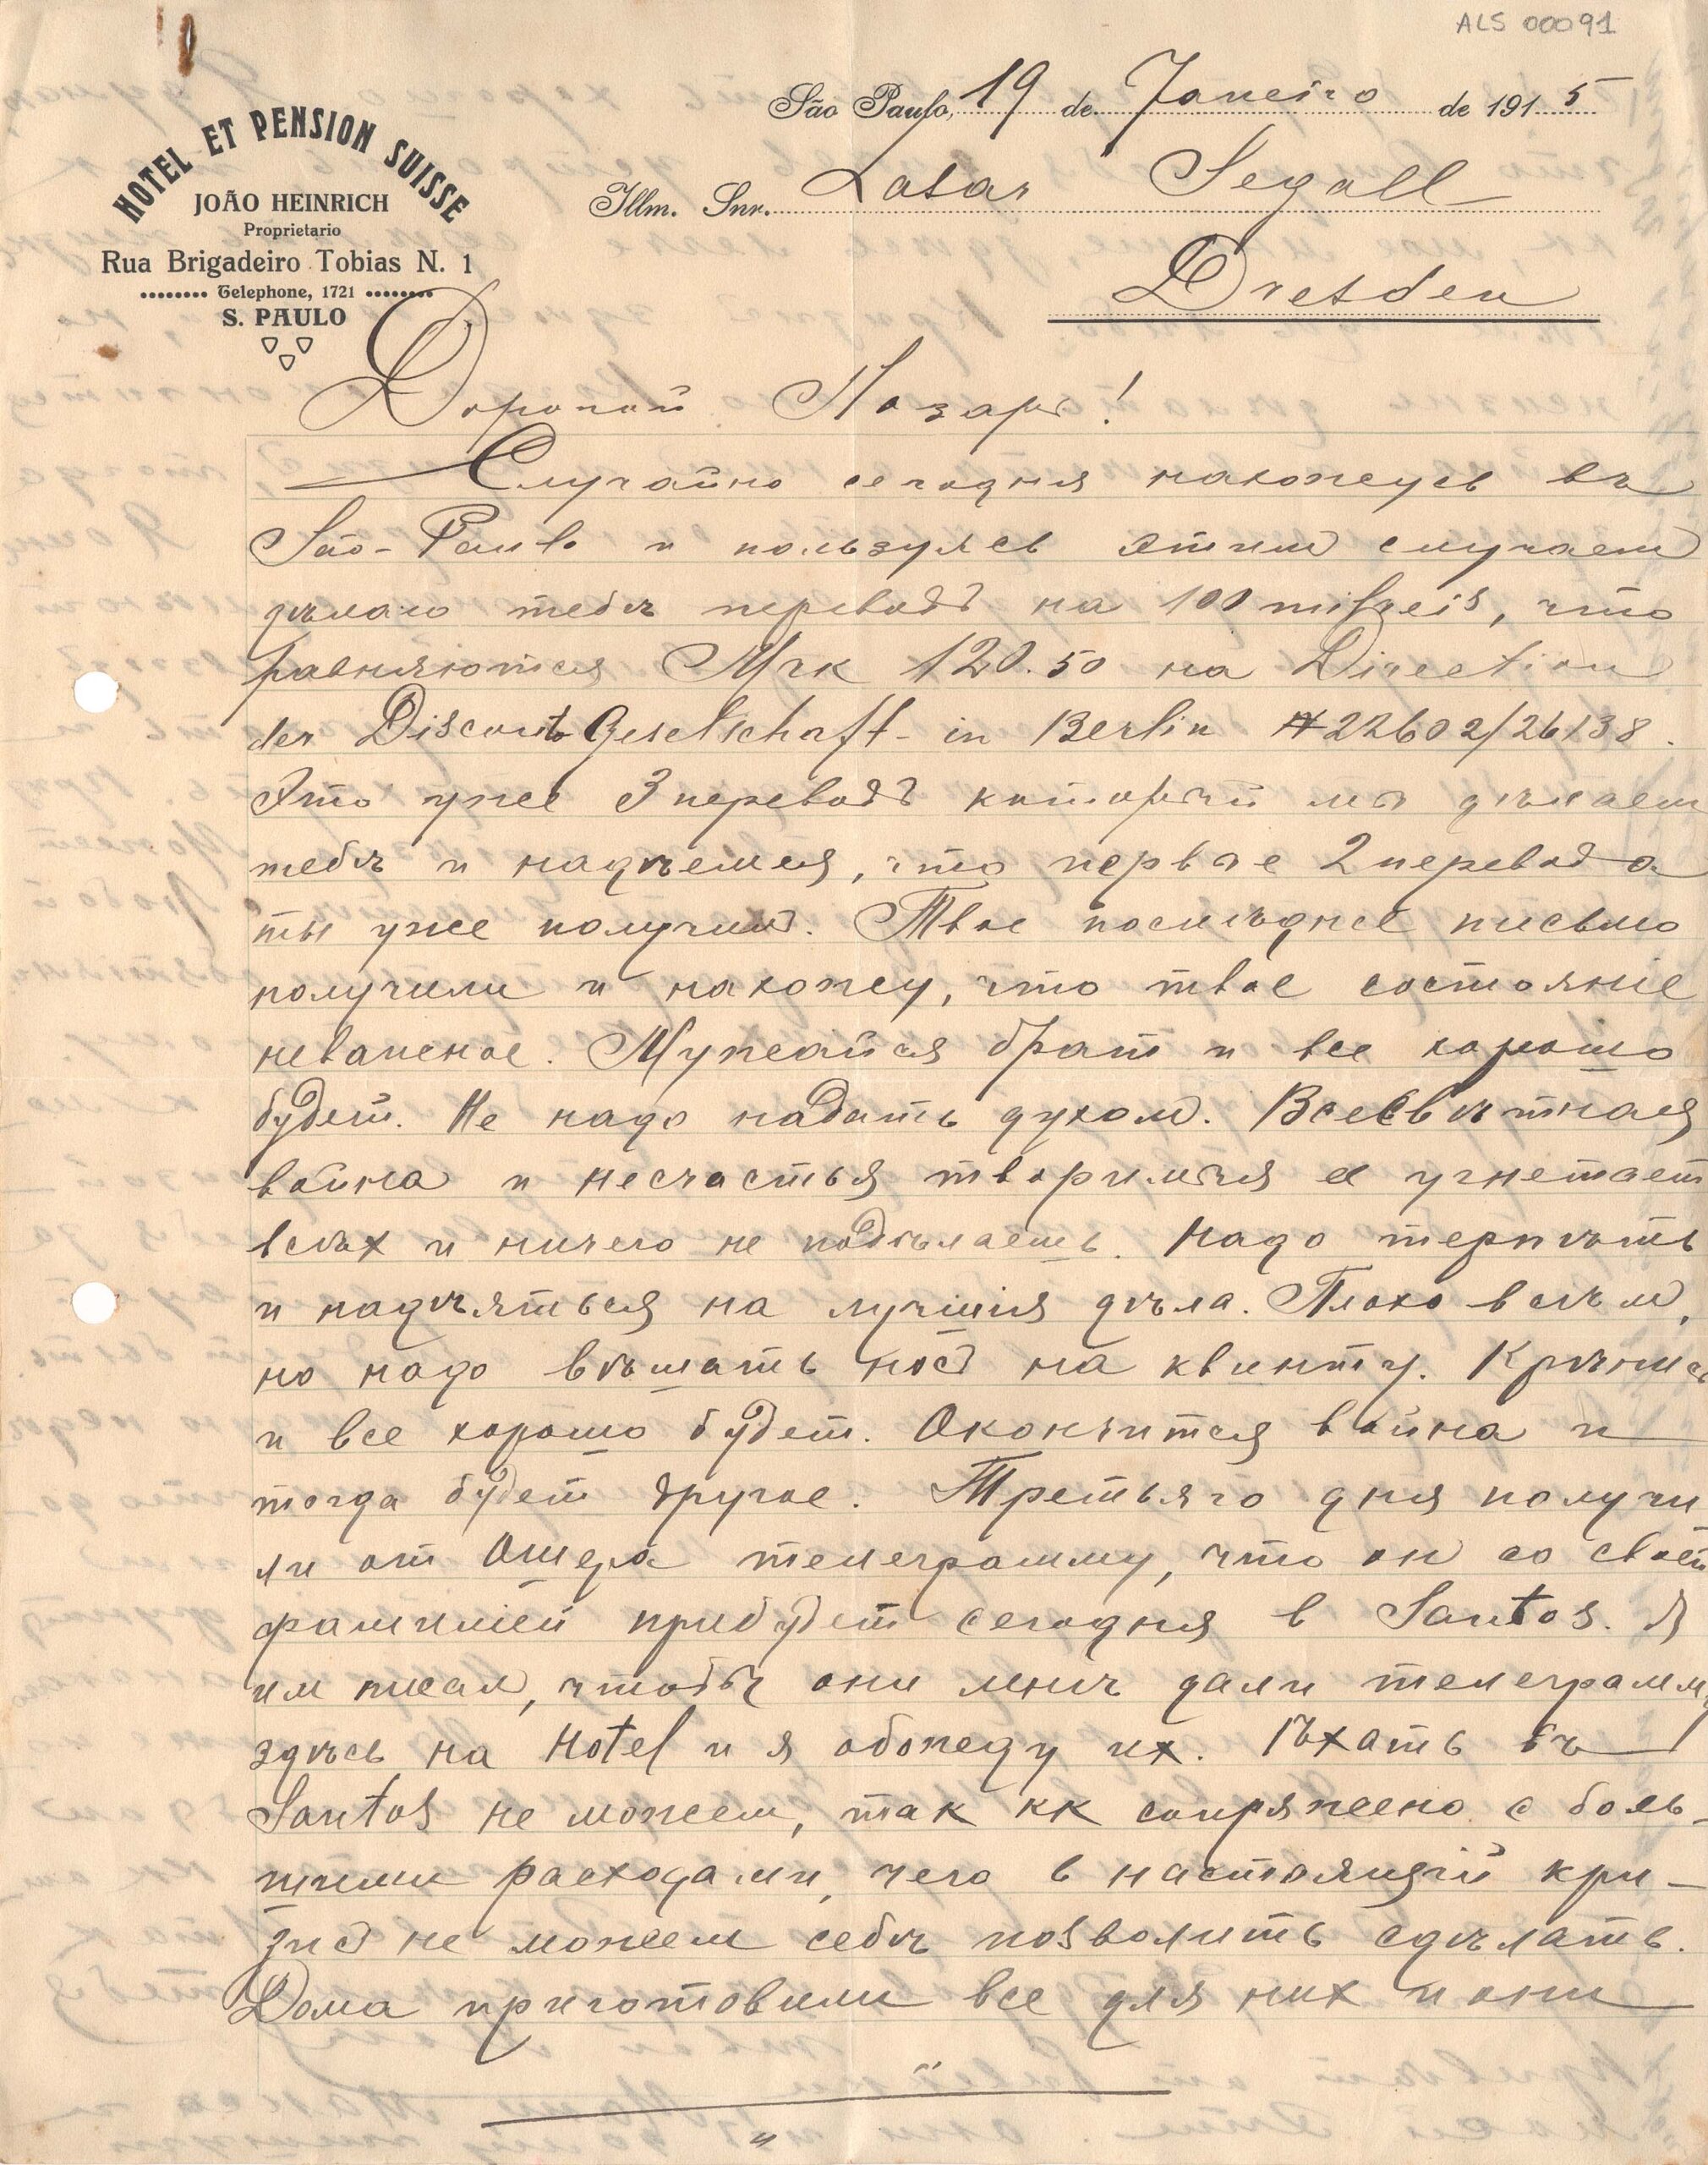 ALS 00091
HOTEL ET PENSION SUISSE
JOÃO HEINRICH
Proprietario
Rua Brigadeiro Tobias N. 1
Telephone, 1721
S. PAULO
São Paulo, 19 de Janeiro de 1915
Illm. Snr. Lasar Segall
Dresden
Дорогой Лазарь!
Случайно сегодня нахожусь въ
São-Paulo и пользуясь этим случаем
дѣлаю тебѣ перевод на 100 milreis, что
равняются Мrk 120.50 на Direction
der Disconto Geselschaft in Berlin № 22602/26138.
Это уже 3 перевод который мы дѣлаем
тебѣ и надѣемся, что первые 2 перевода
ты уже получил. Твое послѣднее письмо
получили и нахожу, что твое состояніе
неважное. Мужайся брат и все хорошо
будет. Не надо падать духом. Всесвѣтная
война и несчастья творимыя ея угнетает
всѣх и ничего не подѣлаешь. Надо терпѣть
и надѣяться на лучшія дѣла. Плохо всѣм,
но надо вѣшать нос на квинту. Крѣпись
и все хорошо будет. Окончится война и
тогда будет другое. Третьяго дня получи
ли от Ошера телеграмму, что он со своей
фамилией прибудет сегодня в Santos. Я
им писал, чтобы они мнѣ дали телеграмму
здѣсь на Hotel и я обожду их. Ѣхать въ
Santos не можем, так кк сопряжено с боль-
шими расходами, чего в настоящій кри-
зис не можем себѣ позволить сдѣлать.
Дома приготовили все для них и они